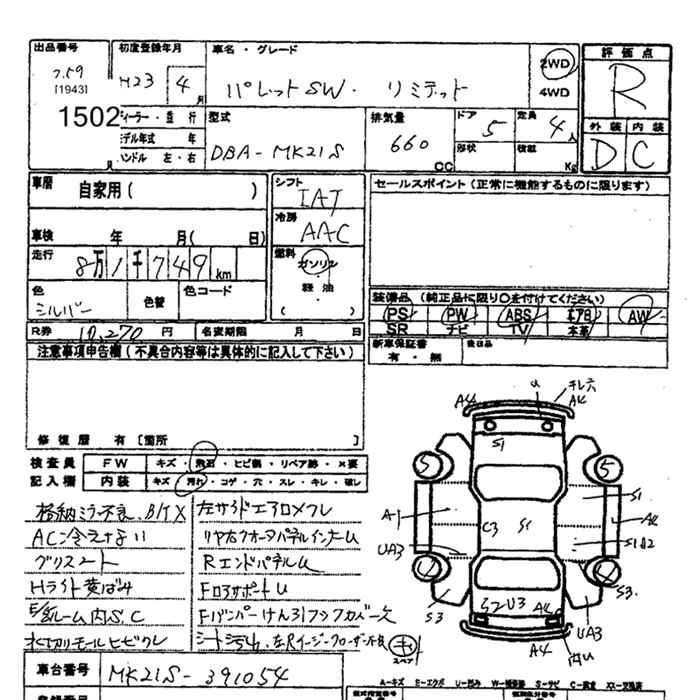 出品番号 初度登録年月 車名・グレード 評価点
7.59 H23 4月 パレットSW・リミテッド 2WD R
[1943] 4WD
1502 ディーラー・並行 型式 排気量 ドア 5 定員 4人 外装 内装
モデル年式 年 DBA-MK21S 660 CC 形状 積載 Kg D C
月 ハンドル 左・右
車歴 自家用( ) シフト IAT セールスポイント(正常に機能するものに限ります)
車検 年 月( 日) 冷房 AAC
走行 8万1千749km 燃料 ガソリン
色 シルバー 色替 色コード 軽油 装備品(純正品に限り○を付けてください)
( ) PS PW ABS エアB AW
R券 10,270円 名変期限 月 日 SR ナビ TV 本革
注意事項申告欄(不具合内容等は具体的に記入して下さい) 新車保証書 有・無 後日品
修復歴 有[箇所 ]
検査員 FW キズ・飛石・ヒビ割・リペア跡・×要
記入欄 内装 キズ・汚れ・コゲ・穴・スレ・キレ・破レ
格納ミラー不良、B/T X 左サイドエアロメクレ
ACコ冷えナイ リヤ右フォータパネルインナーU
ブリスート RエンドパネルU
Hライト黄ばみ FロアサポートU
E/gルーム内S,C Fバンパーけん引フックカバー欠
水切りモールヒビワレ シート汚れ、左Rイージークローザー不良
車台番号 MK21S-391054 スペア キ
A4 U キレ穴 A4
S1
5 5
A1 C3 S1 S1 A2
UA3 S1A2
S3 S3
S2 U3 A4 UA3
A4 内U
A-キズ E-エクボ U-凹み W-補修跡 S-サビ C-腐食 XX-交換済